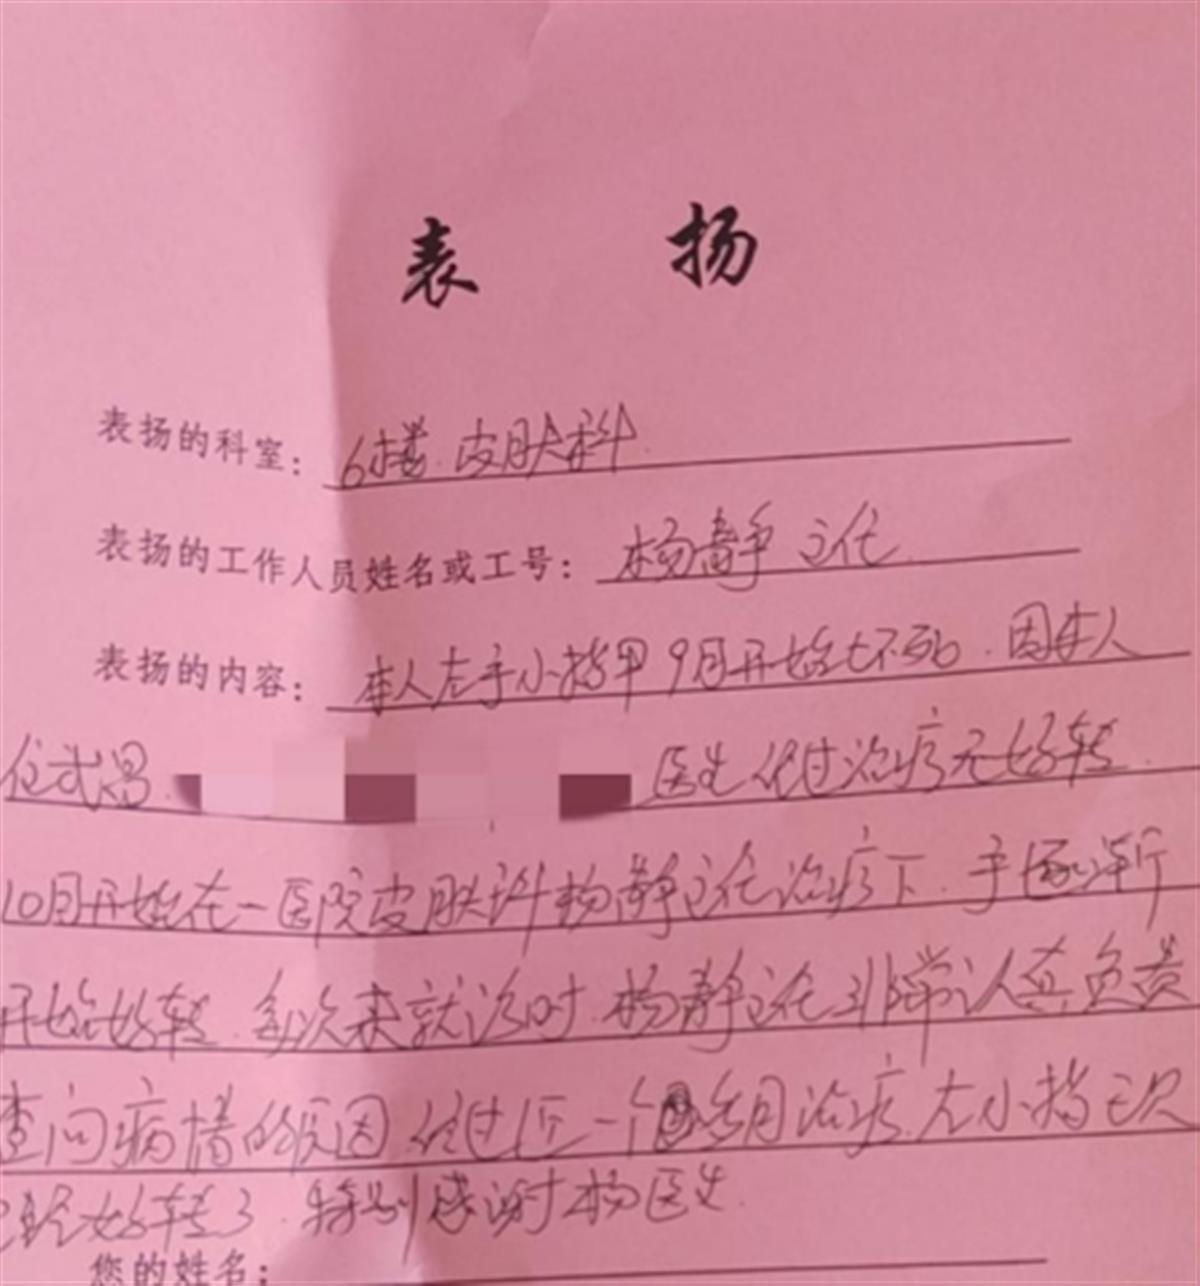 表扬
表扬的科室：6楼.皮肤科.
表扬的工作人员姓名或工号：杨静主任.
表扬的内容：本人左手小指甲9月开始坏死.因本人
住武昌. 医生经过治疗无好转.
10月开始在一医院皮肤科杨静主任治疗下.手逐渐
开始好转.每次来就诊时.杨静主任非常认真负责
查问病情的原因.经过近一个多月治疗.左小指
已经好转了.特别感谢杨医生.
您的姓名：